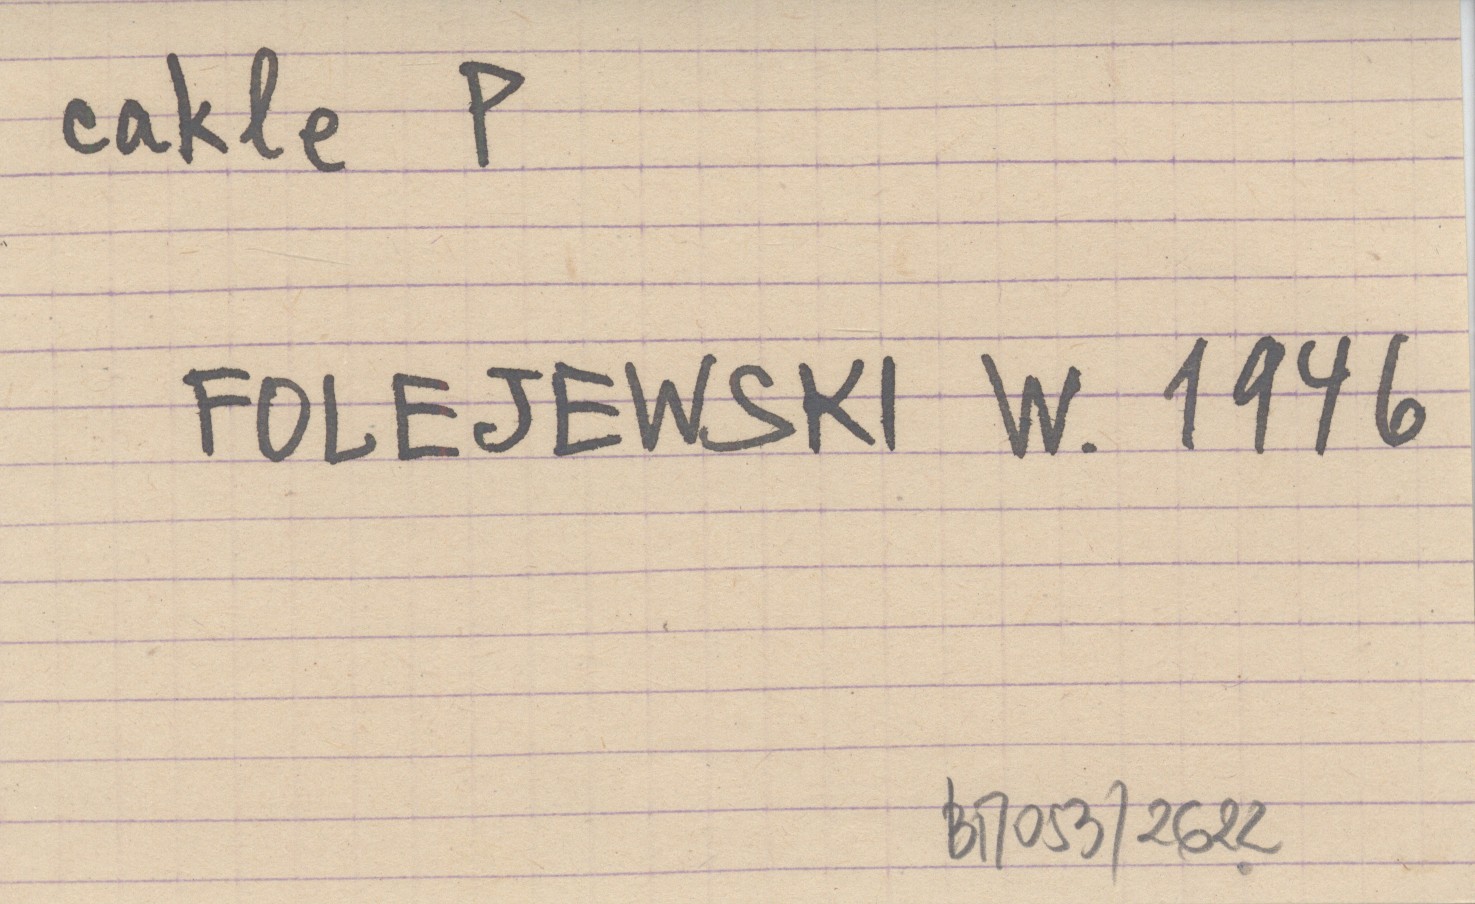 cakle P
FOLEJEWSKI W. 1946
BP/053/2622